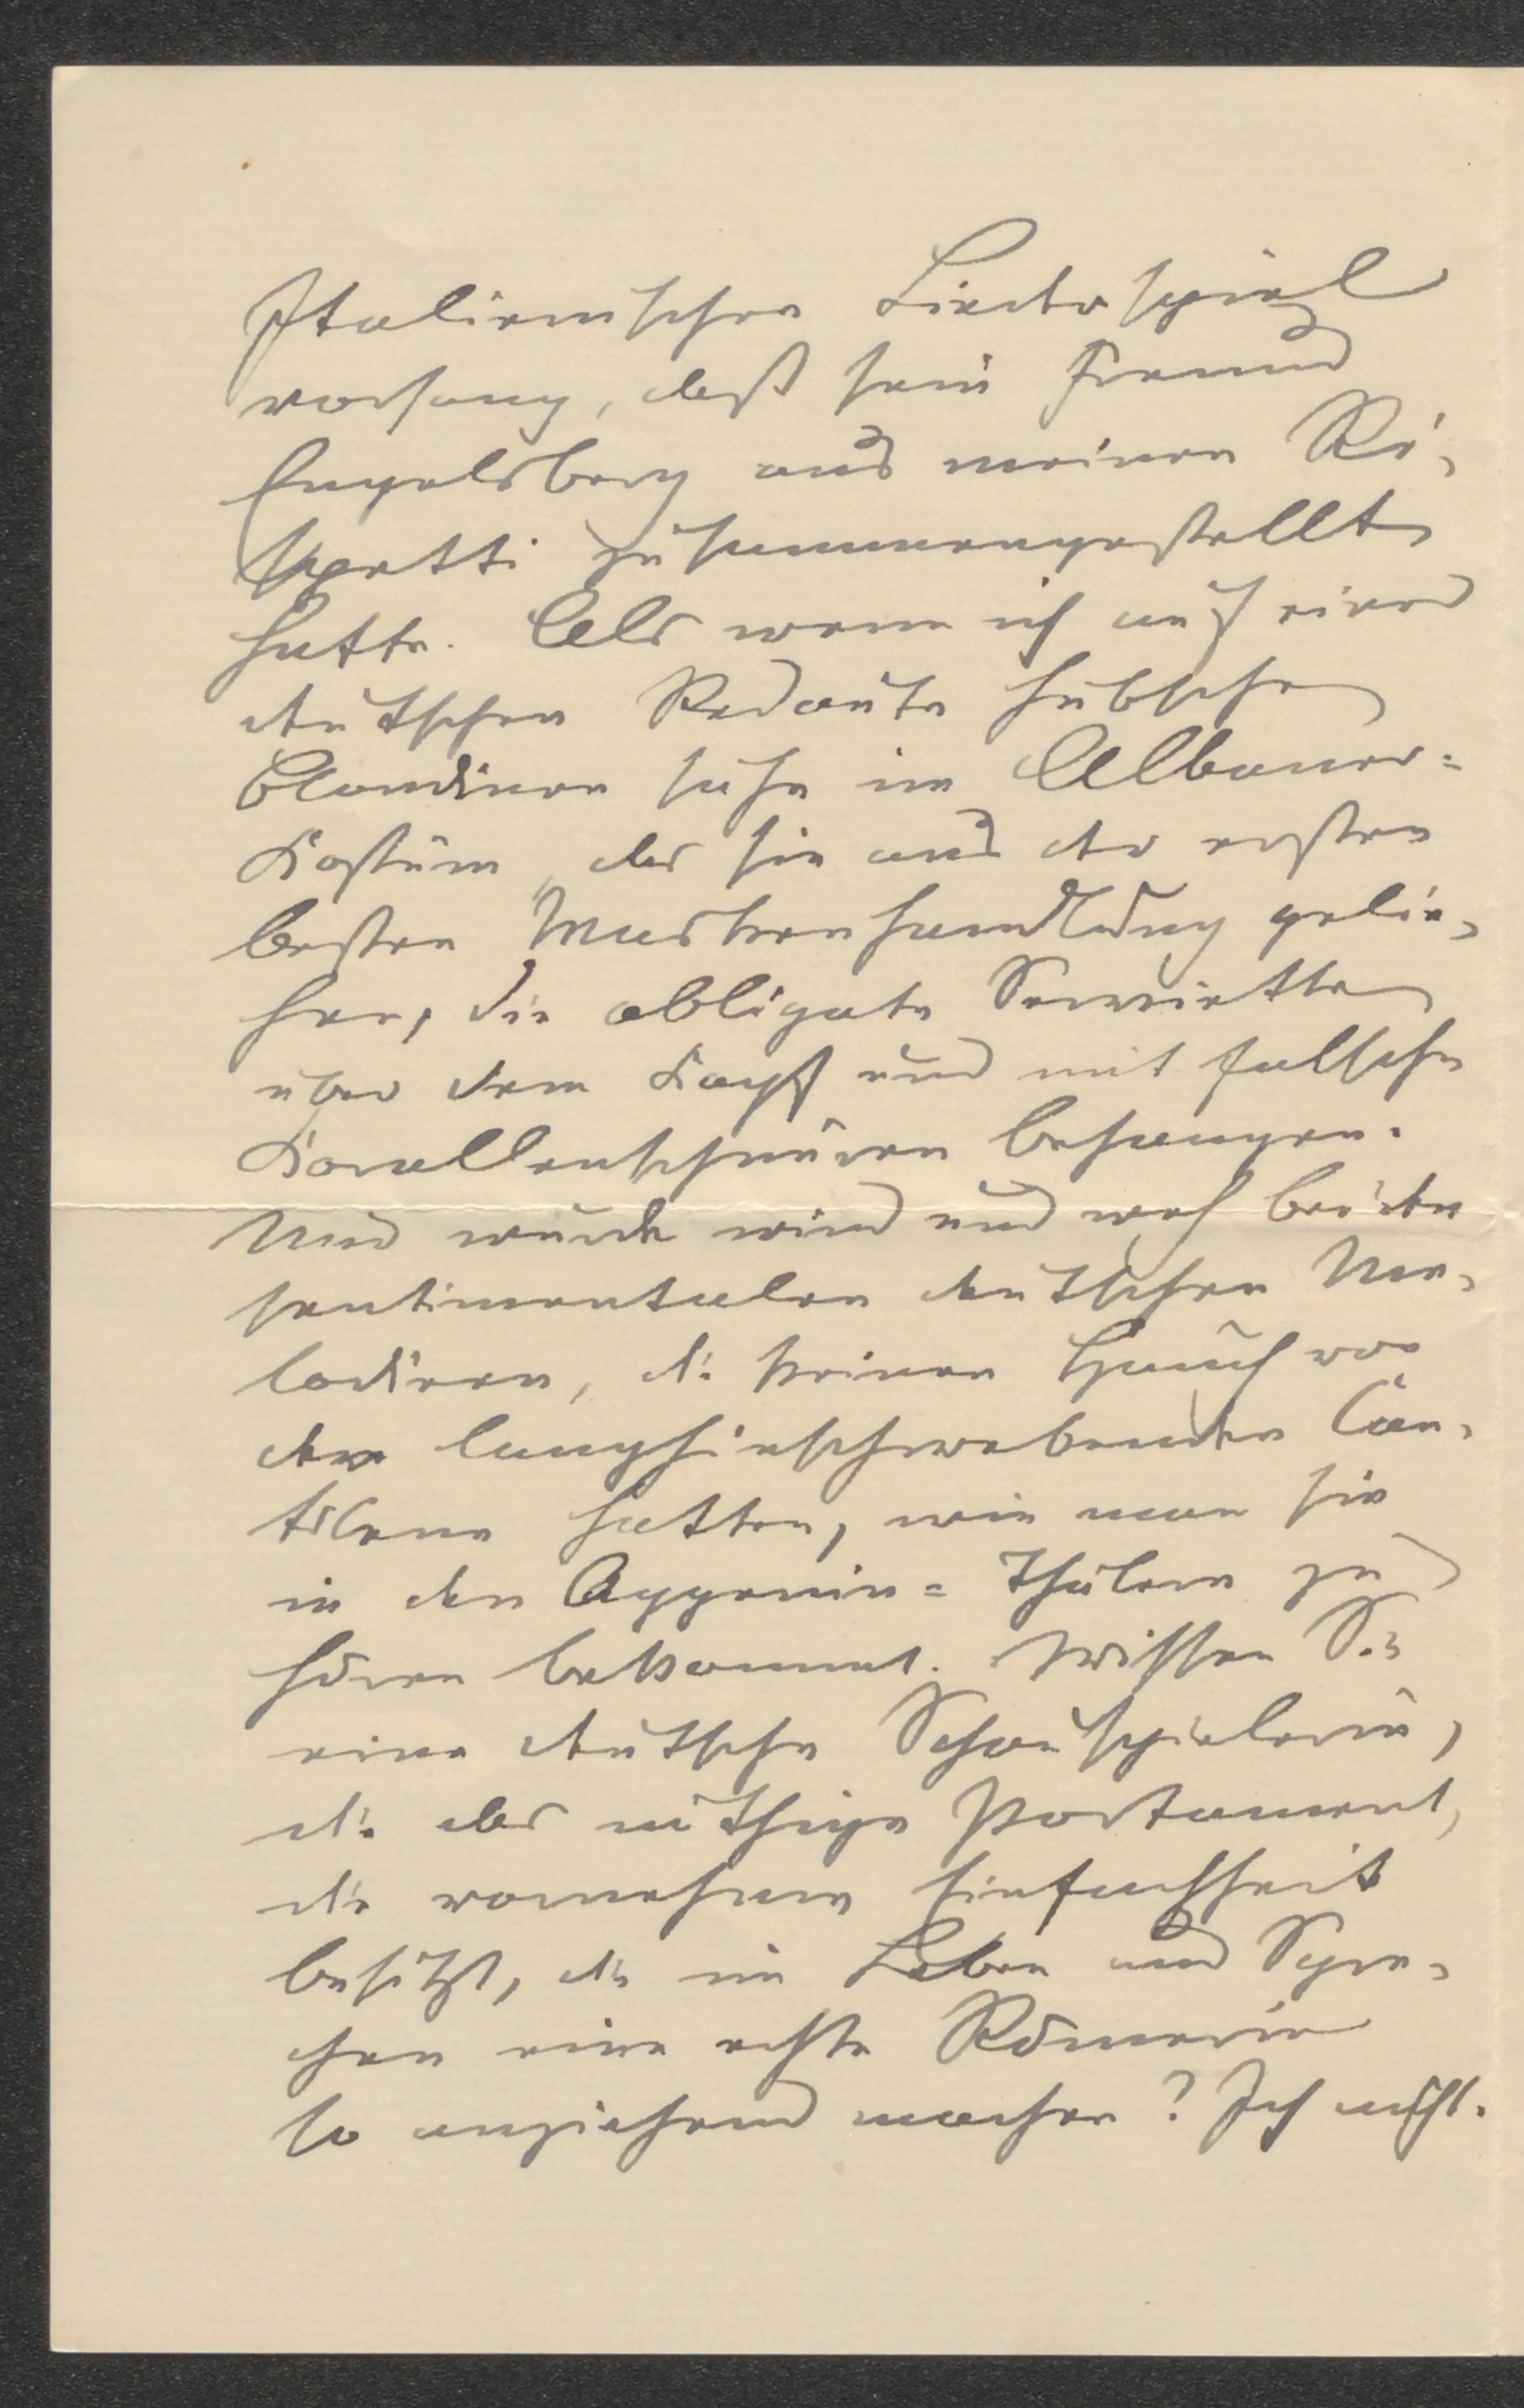 Italienischen Liederspiel
vorsang, daß sein Freund
Engelsberg aus meinen Ri-
spetti zusammengestellt
hatte. Als wenn ich auf einer
deutschen Redoute hübsche
Blondinen sähe im Albaner-
Kostüm, das sie aus der ersten
besten Maskenhandlung gelie-
hen, die obligate Serviette
über dem Kopf und mit falschen
Korallenschnüren behangen.
Mir wurde wind und weh bei den
sentimentalen deutschen Me-
lodieen, die keinen Hauch von
den langhinschwebenden Can-
tilenen hatten, wie man sie
in den Appenin-Thälern zu
hören bekommt. Wissen Sie
eine deutsche Schauspielerin,
die das nöthige Portament,
die vornehme Einfachheit
besitzt, die im Leben und Spre-
chen eine echte Römerin
so anziehend machen? Ich nicht.